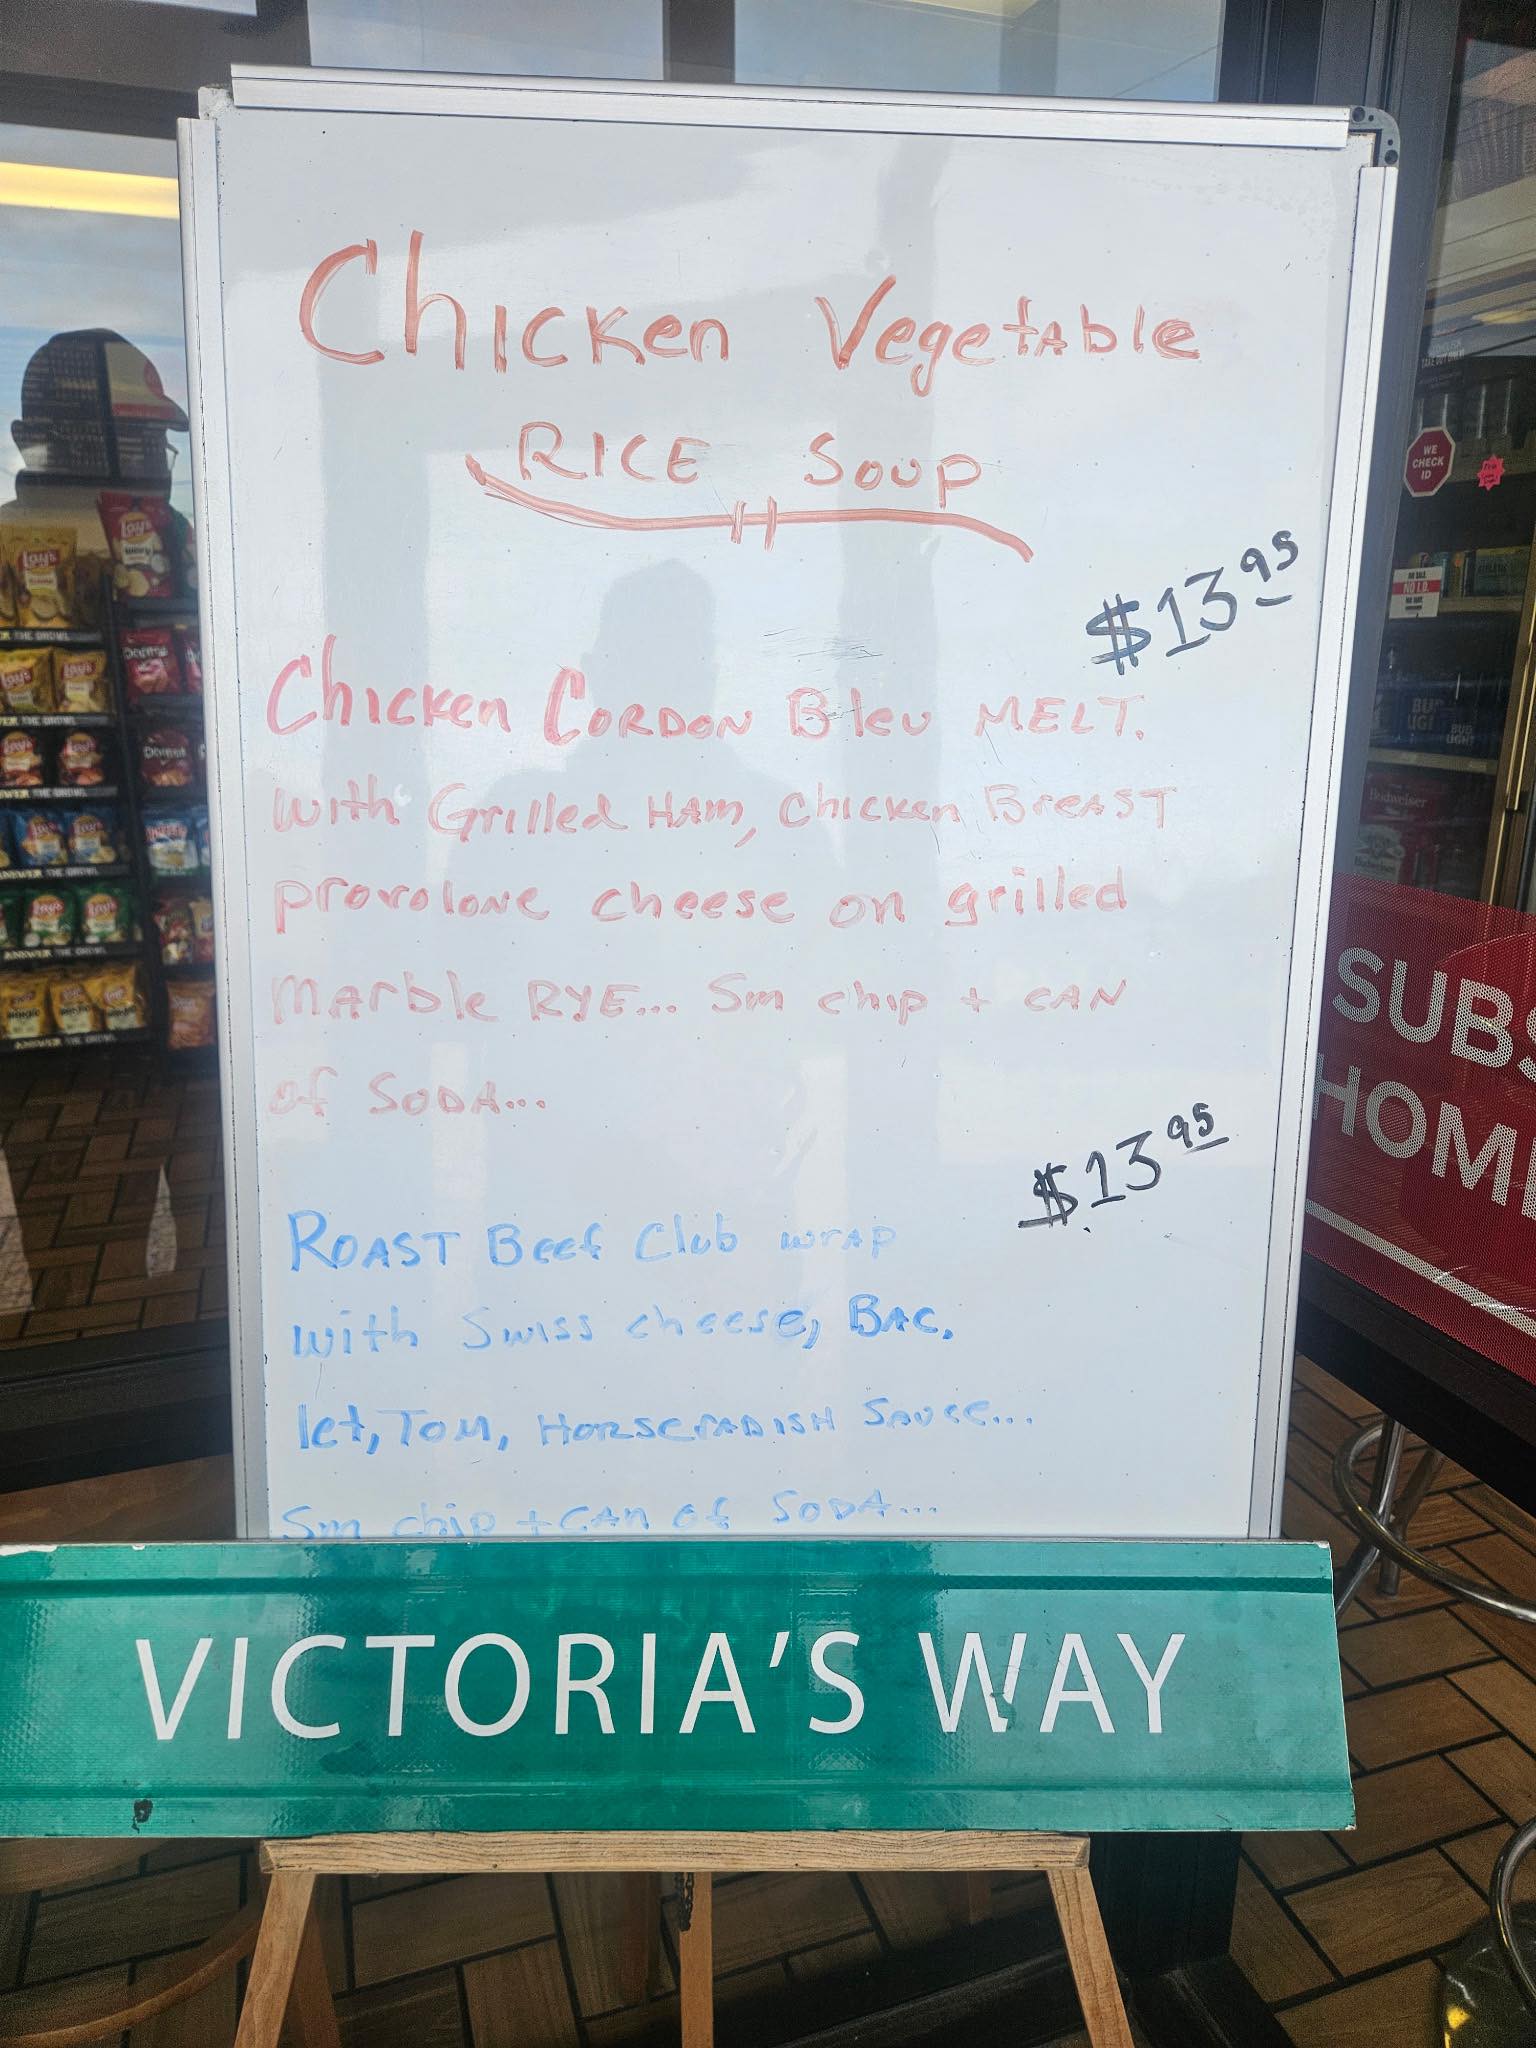 Chicken Vegetable
RICE Soup
$13.95
Chicken CORDON Bleu MELT.
with Grilled HAM, Chicken BreAST
provolone cheese on grilled
Marble RYE... Sm chip + CAN
of SODA...
$13.95
ROAST Beef Club wrap
with Swiss cheese, BAC.
let, TOM, HORSerADISH SAUce...
Sm chip + CAN of SODA...
VICTORIA'S WAY
WE
CHECK
ID
NO I.D.
BUD
LIGHT
Budweiser
SUBS
HOM
Lay's
Lay's
Doritos
Lay's
Lay's
Doritos
Lay's
Lay's